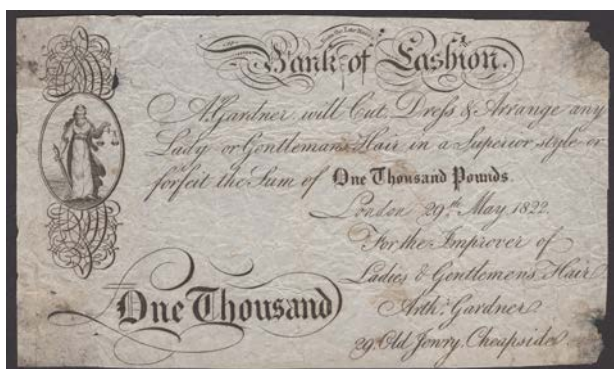 Bank of Fashion.
A. Gardner will Cut, Dress & Arrange any
Lady or Gentlemans Hair in a Superior style or
forfeit the Sum of One Thousand Pounds.
London 29.th May 1822.
For the Improver of
Ladies & Gentlemens Hair
One Thousand
Arth.r Gardner
29. Old Jewry, Cheapside